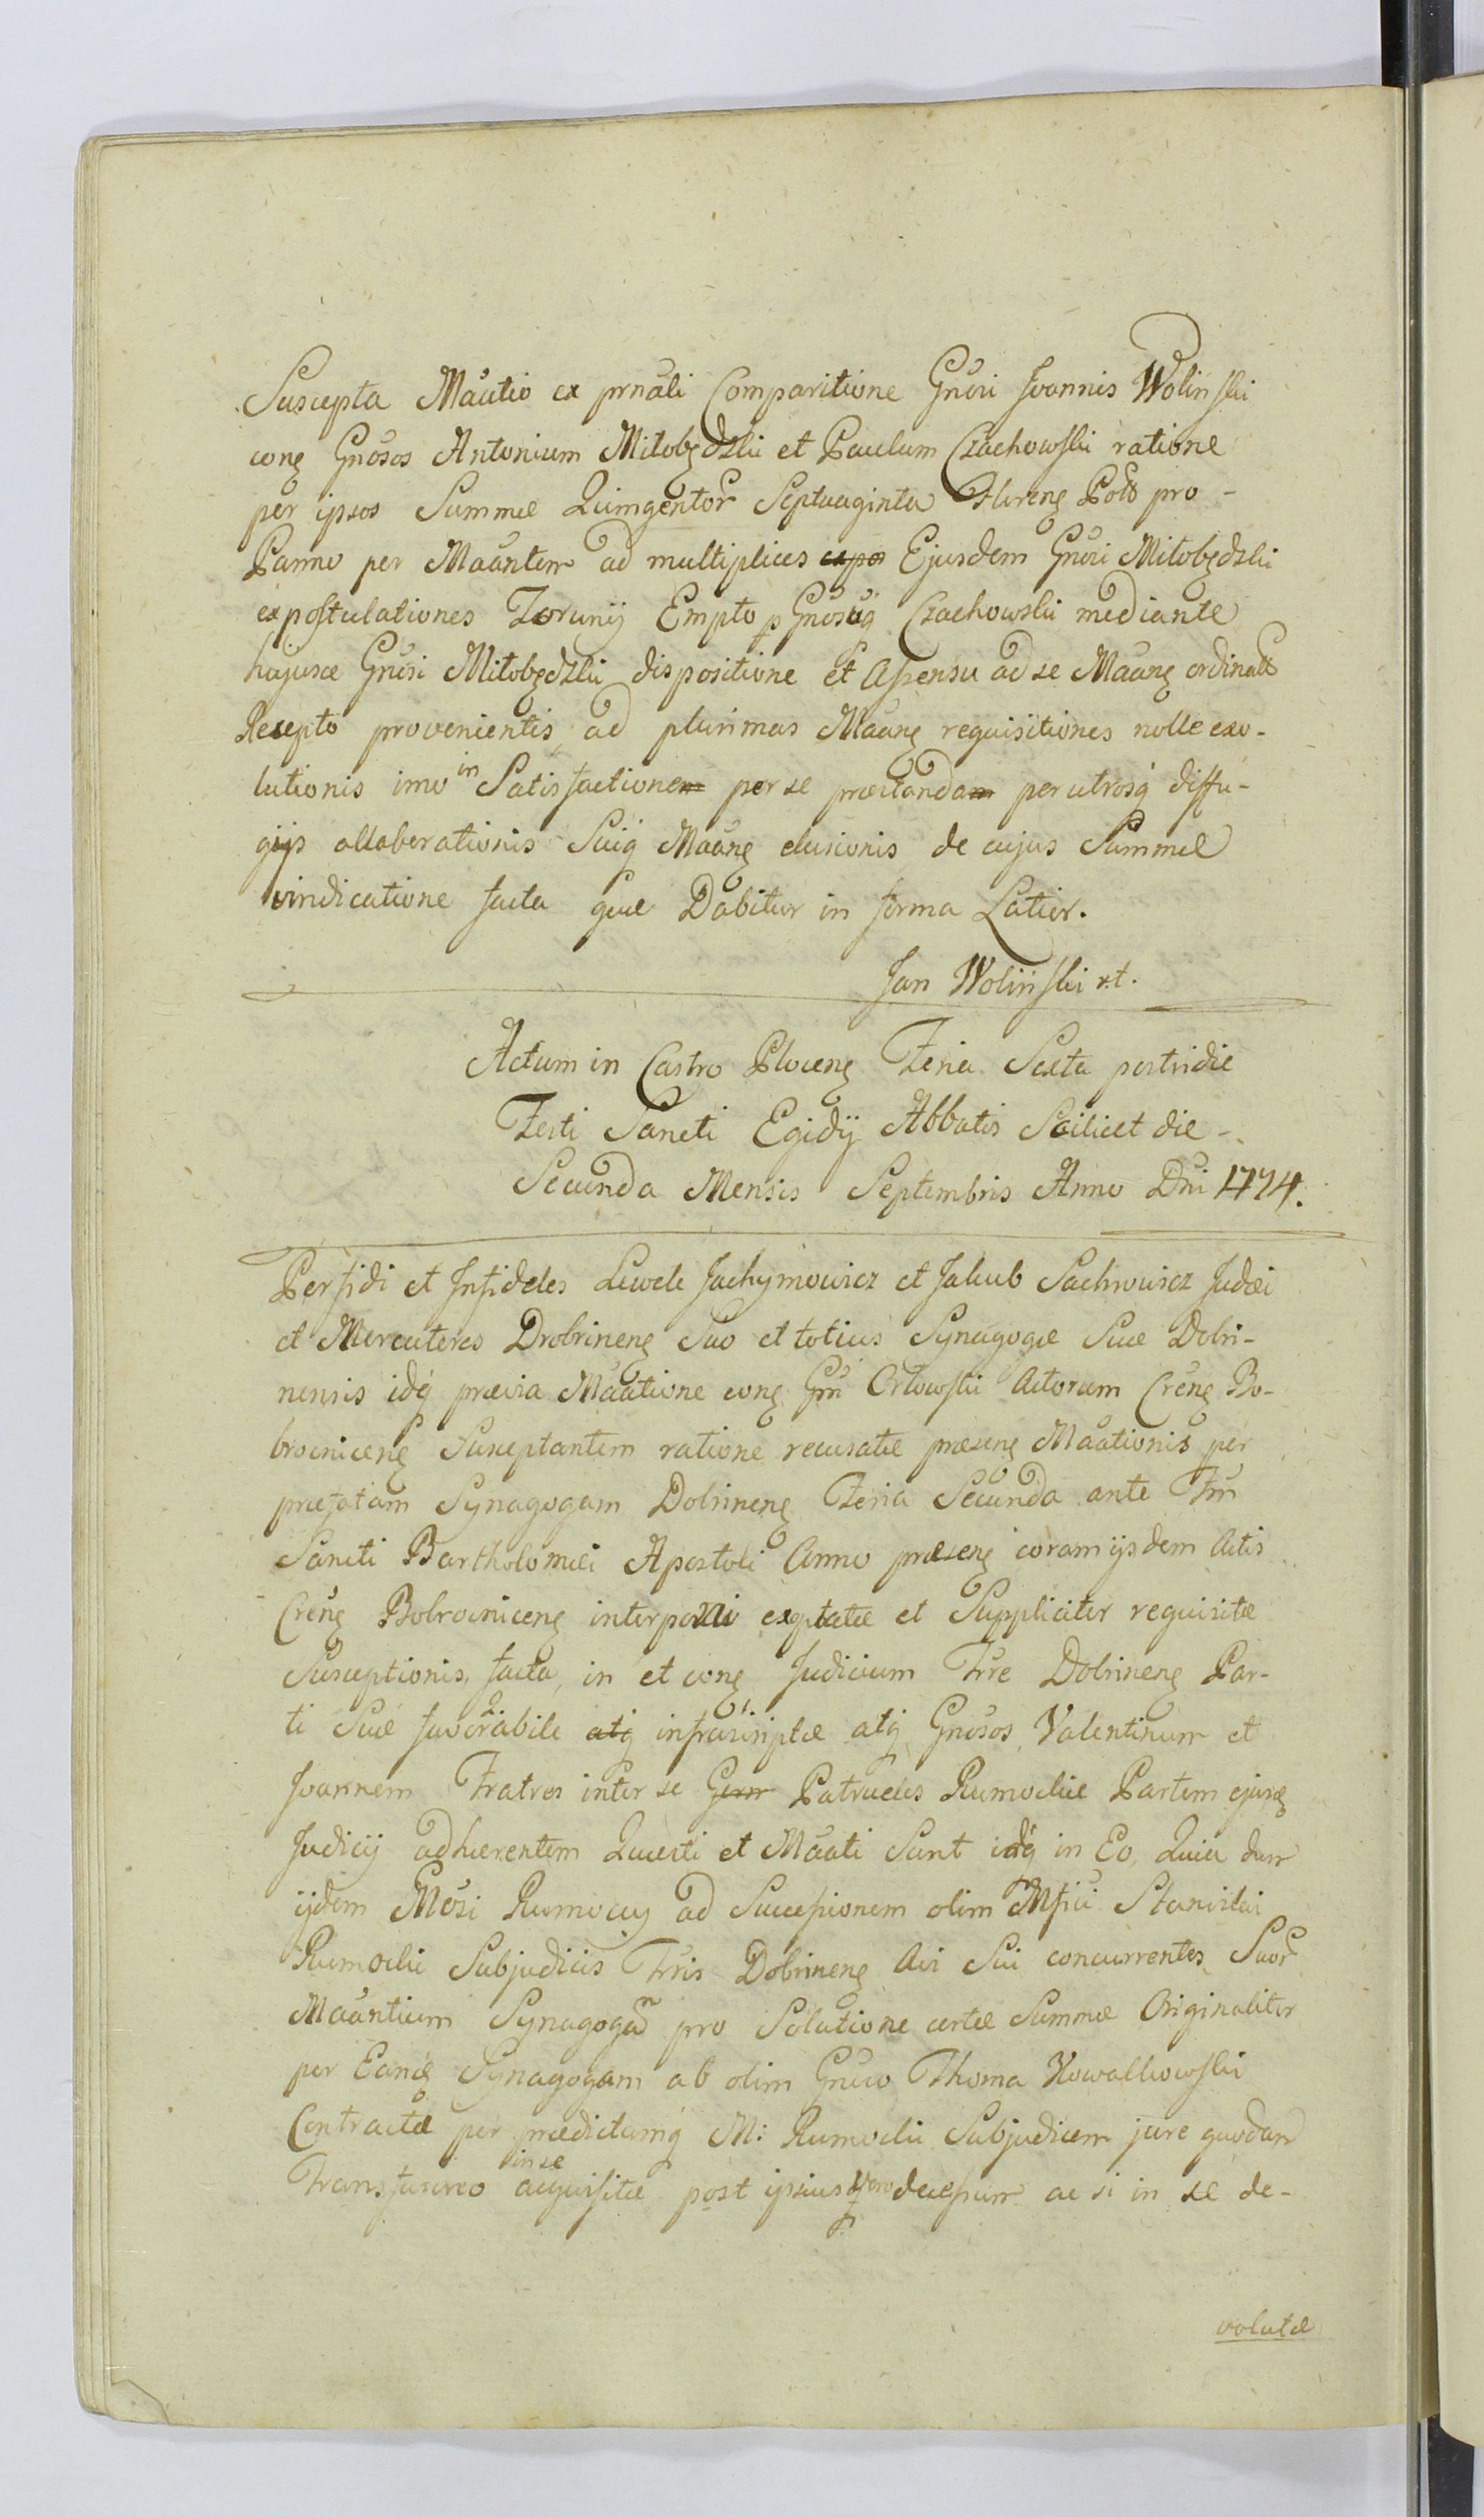 Suscepta Mãatio ex prnãli Comparitione Gnõri Joannis Woliński
cong Gnosos Antonium Miłobędzki et Paulum Czachowski ratione
per ipsos Summæ Quingentor Septuaginta Floreng Pols pro-
Panno per Maãntem ad multiplices Ejusdem Gnõri Miłobędzki
expostulationes Torunij Empto p Gnosuq Czachowski mediante
hujusce Gnõri Miłobędzki dispositione et Assensu ad se Maãng ordinate
Recepto provenientis ad plurimas Maãng requisitiones nolle exo-
lutionis imo in Satisfactione per se præstanda per utrosq diffu-
gijs allaborationis Suiq Maãng elusionis de cujus Summæ
vindicatione facta quæ Dabitur in forma Latior.
Jan Woliński
Actum in Castro Ploceng Feria Sexta postridie
Festi Sancti Egidij Abbatis Scilicet die
Secunda Mensis Septembris Anno Dni 1774.
Perfidi et Infideles Lewek Jachymowicz et Jakub Sachwicz Judæi
et Mercatores Drobrineng Suo et totius Synagogæ Suæ Dobri-
nensis idq prævia Maãtione cong Grñ Orłowski Actorum Creng Bo-
browniceng Susceptantem ratione recusatæ præseng Maãtionis per
præfatam Synagogam Dobrineng Feria Secunda ante Frñ
Sancti Bartholomæi Apostoli Anno præseng coram ijsdem Actis
Creng Bobrowniceng interponi exoptatæ et Suppliciter requisitæ
Susceptionis, facta, in et cong Judicium Frre Dobrineng Par-
ti Suæ favorabile atq infrascriptæ atq Gnosos Valentinum et
Joannem Fratres inter se Germ Patrueles Rumockie Partem ejusq
Judicij adhærentem Questi et Maãti Sunt idq in Eo Quia dum
ijdem Mõsi Rumoccy ad Successionem olim Mfici Stanislai
Rumocki Subjudicis Frris Dobrineng Avi Sui concurrentes Suor
Maãntium Synagogam pro Solutione certæ Summæ Originaliter
per Eandq Synagogam ab olim Gnõso Thoma Nowalkowski
Contractæ per prædictamq M: Rumocki Subjudicem jure quodam
Transfusivo in se acquisitæ post ipsius vero decessum ac si in se de-
volutæ